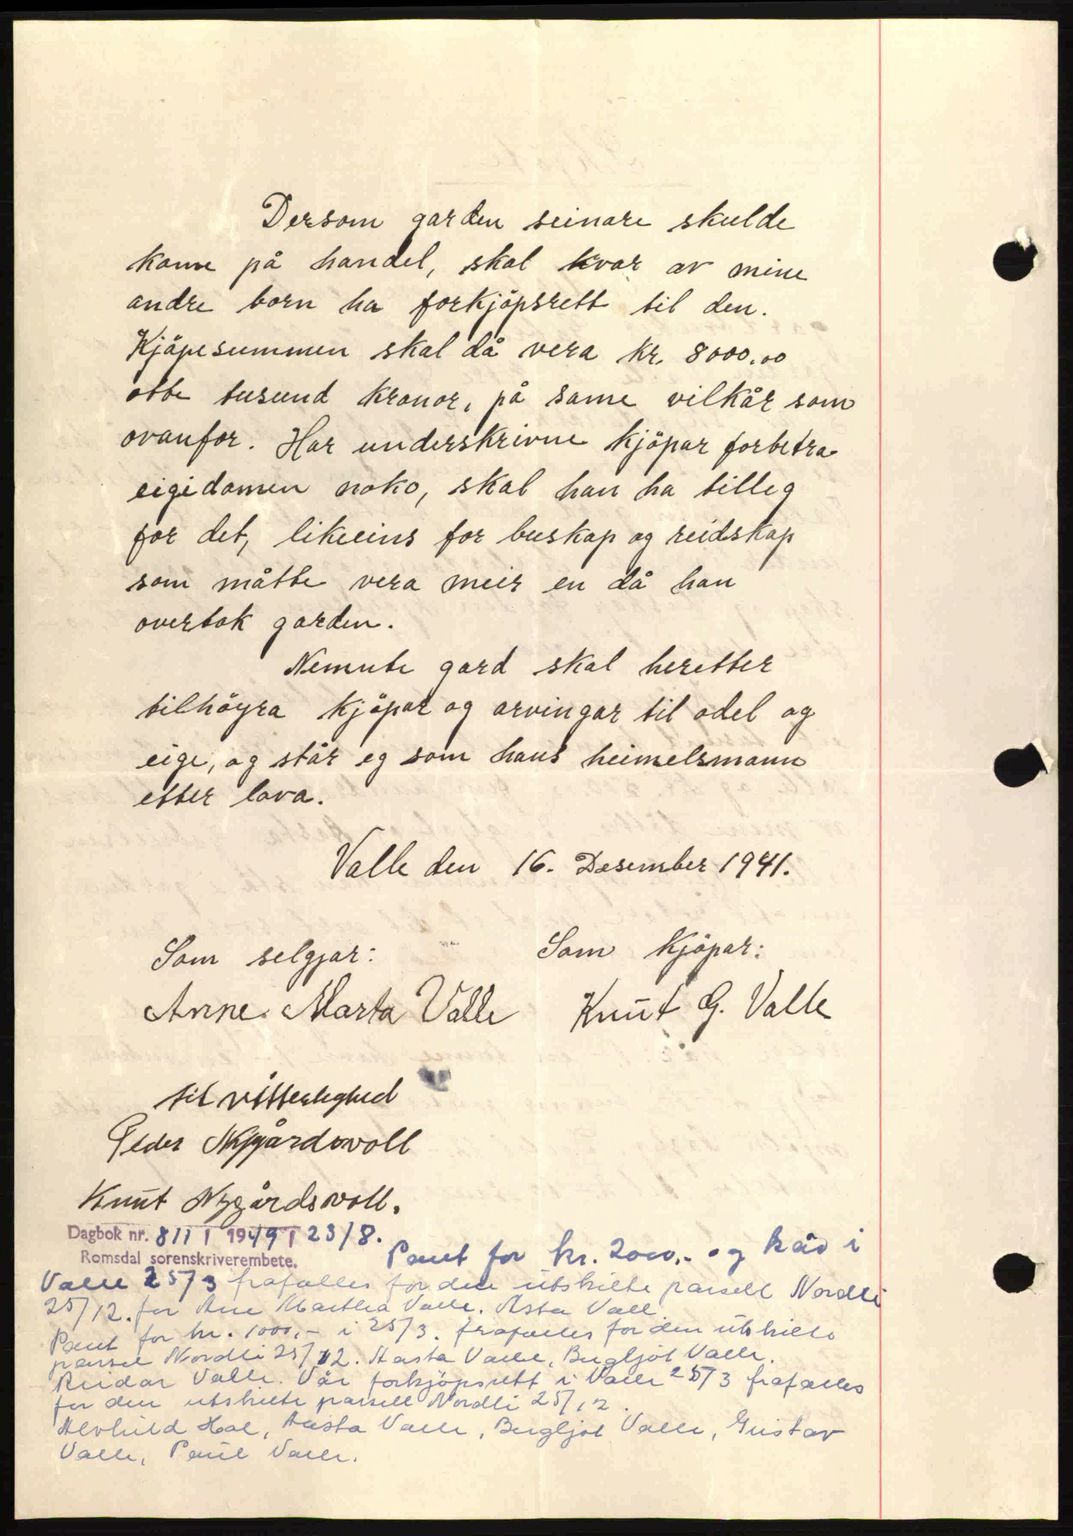 Dersom garden seinare skulde
kome på handel, skal kvar av mine
andre born ha forkjöpsrett til den.
Kjöpesummen skal då vera kr. 8000,00
otte tusund kronor, på same vilkår som
ovanfor. Har underskrivne kjöpar forbetra
eigedomen noko, skal han ha tilleg
for det, likeeins for buskap og reidskap
som måtte vera meir en då han
overtok garden.
Nemnte gard skal heretter
tilhöyra kjöpar og arvingar til odel og
eige, og står eg som hans heimelsmann
etter lova.
Valle den 16. Desember 1941.
Som selgjar: Som kjöpar:
Anne Marta Valle Knut G. Valle
til vitterlighed
Peder Nygårdsvoll
Knut Nygårdsvoll.
Dagbok nr. 811 / 1949 / 23/8.
Romsdal sorenskriverembete.
Pant for kr. 2000,- og kår i
Valle 25/3 frafalles for den utskilte parsell Nordli
25/12. for Ane Martha Valle. Asta Valle
Pant for kr. 1000,- i 25/3. frafalles for den utskilte
parsel Nordli 25/12. Aasta Valle, Bergljot Valle.
Reidar Valle. Vår forkjöpsrett i Valle 25/3 frafalles
for den utskilte parsell Nordli 25/12.
Alvhild Hol, Aasta Valle, Bergljot Valle, Gustav
Valle, Paul Valle.